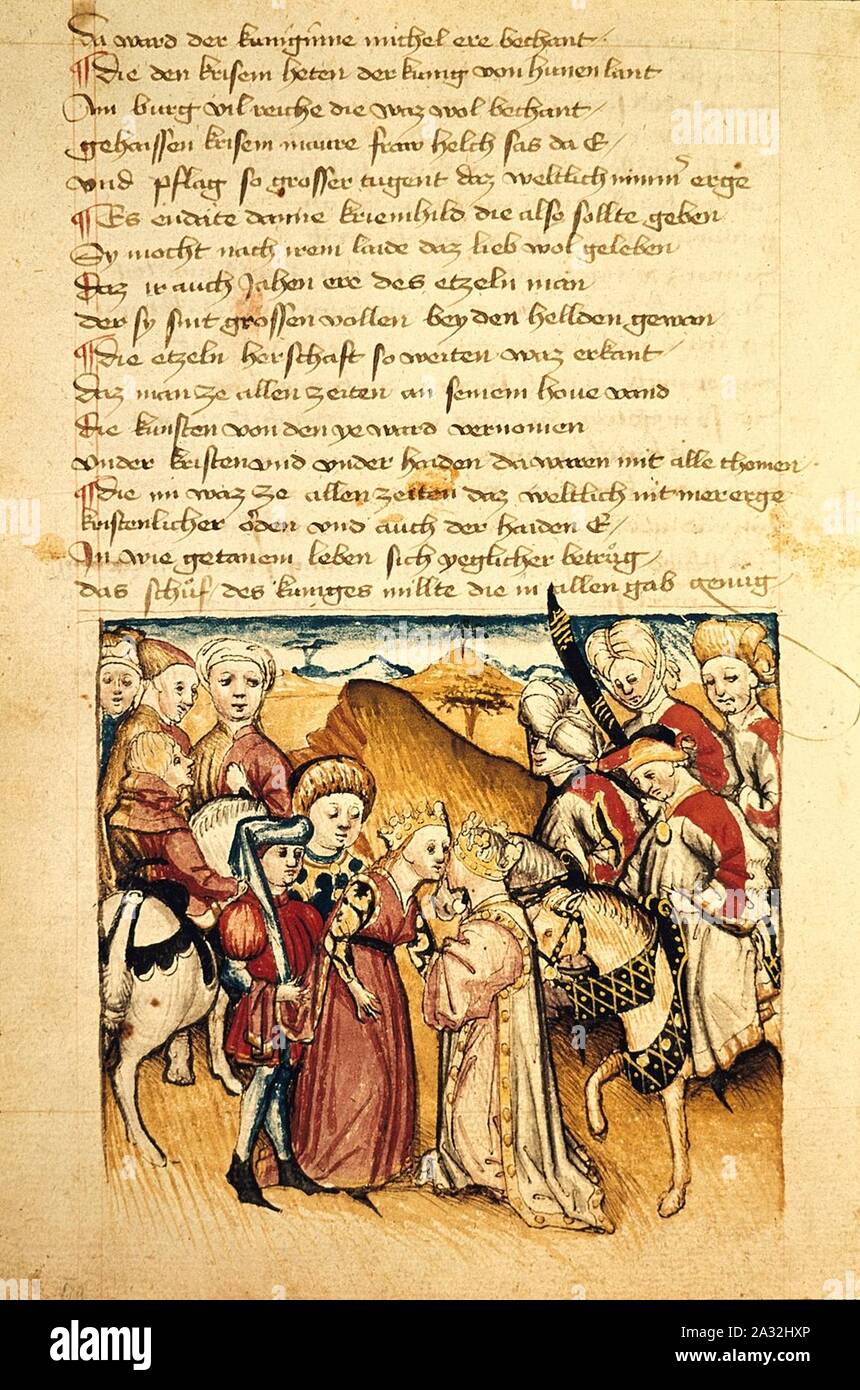 da ward der kuniginne michel ere bechant
die den krisem heten der kunig von hunen lant
Ain burg vil reiche die waz wol bechant
gehaissen krisem maure fraw helch sas da E
vnd pflag so grosser tugent daz weltlich nimm̄ erge
Es endite danne kriemhild die also sollte geben
Sy mocht nach irem laide daz lieb wol geleben
Daz ir auch Jahen ere des etzeln man
der sy sint grossen vollen bey den hellden gewan
die etzeln herschaft so weiten waz erkant
daz man ze allen zeiten an seinem houe vand
die kunsten von den ye ward vernomen
vnder kristen vnd vnder haiden da waren mit alle chomen
die im waz ze allen zeiten daz weltlich nit mer erge
kristenlicher orden vnd auch der haiden E
In wie getanem leben sich yeglicher betrůg
das schůf des kuniges millte die in allen gab genůg
alamy
Image ID: 2A32HXP
www.alamy.com